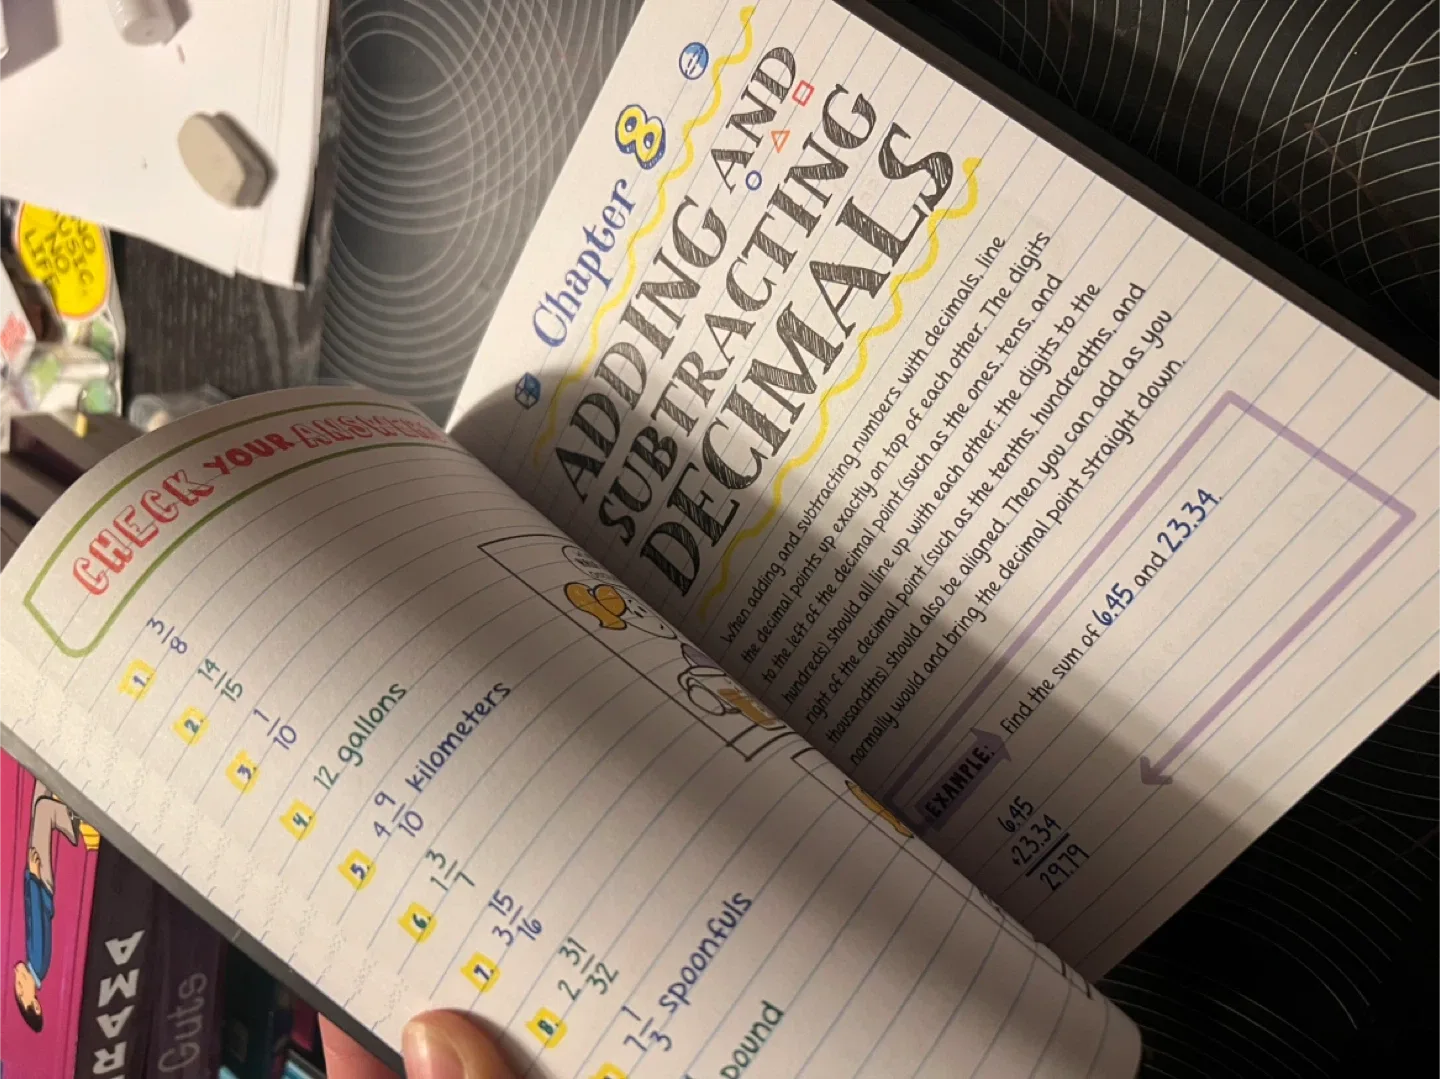 CHECK YOUR ANSWERS
1. 3/8
2. 14/15
3. 1/10
4. 12 gallons
5. 4 9/10 kilometers
6. 1 3/7
7. 3 15/16
8. 2 31/32
7 1/3 spoonfuls
pound
Chapter 8
ADDING AND
SUBTRACTING
DECIMALS
When adding and subtracting numbers with decimals, line
the decimal points up exactly on top of each other. The digits
to the left of the decimal point (such as the ones, tens, and
hundreds) should all line up with each other; the digits to the
right of the decimal point (such as the tenths, hundredths, and
thousandths) should also be aligned. Then you can add as you
normally would and bring the decimal point straight down.
EXAMPLE: Find the sum of 6.45 and 23.34.
6.45
+23.34
29.79
NO
MUSIC
NO
LIFE
AMAR
Guts